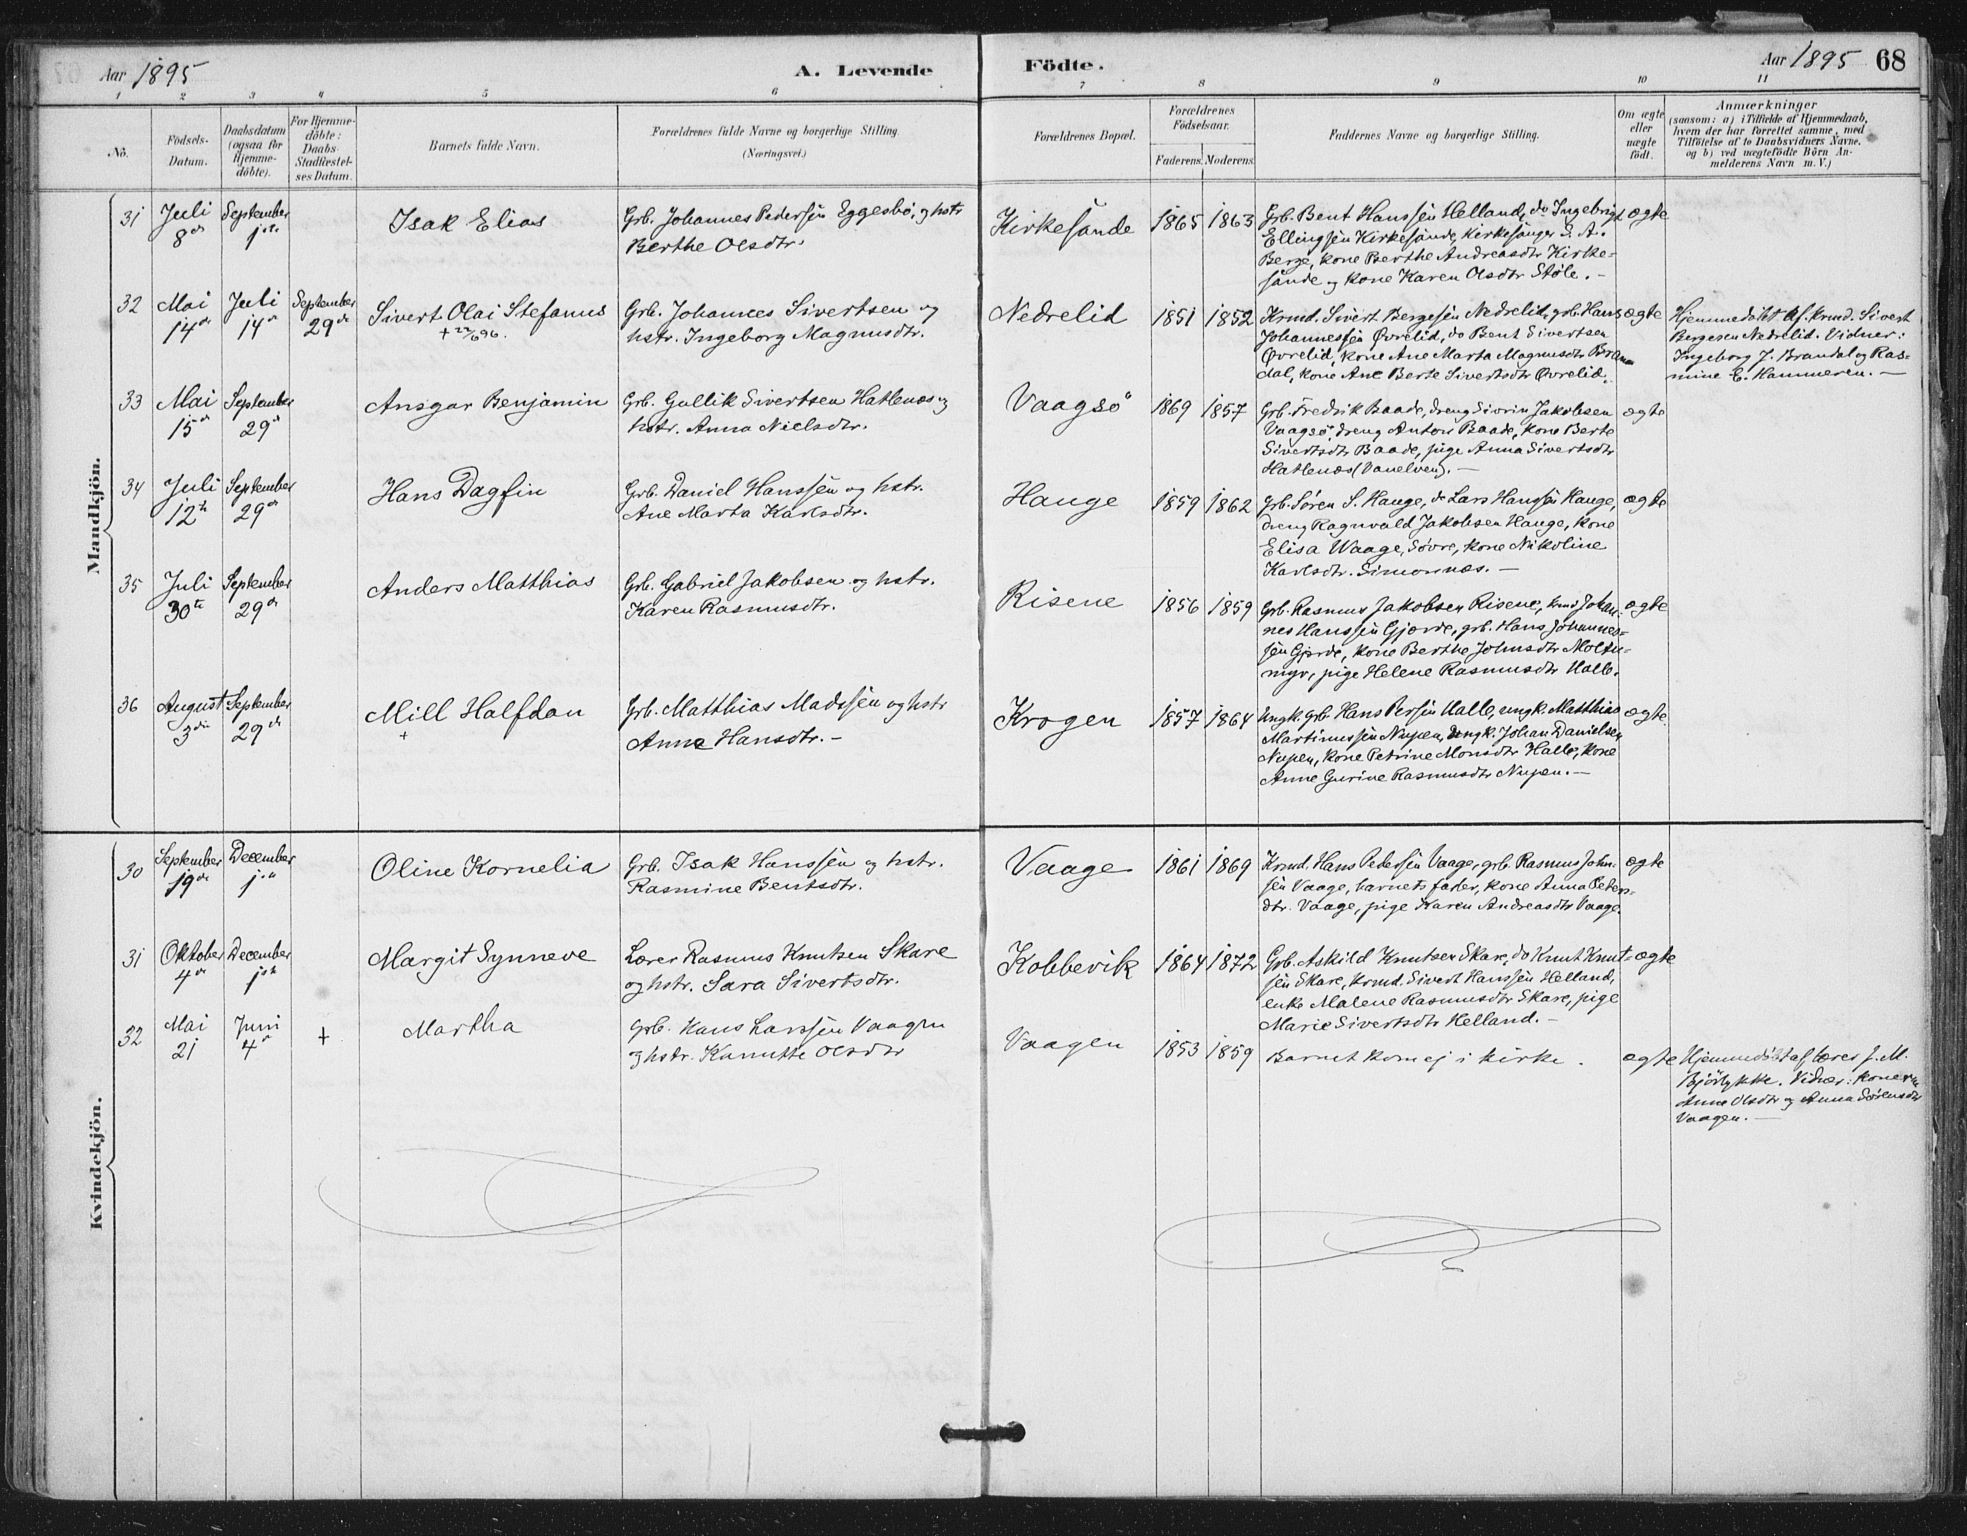 Aar 1895
A. Levende
Födte.
Aar 1895 68
1 2 3 4 5 6 7 8 9 10 11
No.
Födsels-
Datum.
Daabsdatum
(ogsaa for
Hjemme-
döbte).
For Hjemme-
döbte:
Daabs-
Stadfæstel-
ses Datum.
Barnets fulde Navn.
Forældrenes fulde Navne og borgerlige Stilling
(Næringsvei.)
Forældrenes Bopæl.
Forældrenes
Födselsaar.
Faderens. Moderens.
Faddernes Navne og borgerlige Stilling.
Om ægte
eller
uægte
født.
Anmærkninger
(saasom: a) i Tilfælde af Hjemmedaab,
hvem der har forrettet samme, med
Tilföielse af to Daabsvidners Navne.
og b) ved uægtefödte Börn An-
melderens Navn m. V.)
Mandkjön.
31
Juli
8de
September
1ste
Isak Elias
Grb. Johannes Pedersen Eggesbö, og hstr
Berthe Olsdtr.
Kirkesande
1865 1863
Grb. Bent Hanssen Helland, do Ingebrigt
Ellingsen Kirkesande, Kirkesanger S. A.
Berge, kone Berthe Andreasdtr Kirke-
sande og kone Karen Olsdtr Støle. -
ægte
32
Mai
14de
Juli
14de
September
29de
Sivert Olai Stefanus
+ 22/6 96.
Grb. Johannes Sivertsen og
hstr. Ingeborg Magnusdtr.
Nedrelid
1851 1852
Krmd. Sivert Bergesen Nedrelid, grb. Hans
Johannessen Øvrelid, do Bent Sivertsen
Øvrelid, kone Ane Marta Magnusdtr Bran-
dal, kone Ane Berte Sivertsdtr Øvrelid.
ægte
Hjemmedöbt af Krmd. Sivert
Bergesen Nedrelid. Vidner:
Ingeborg J. Brandal og Ras-
mine E. Hammeren. -
33
Mai
15de
September
29de
Ansgar Benjamin
Grb. Gullik Sivertsen Hatlenæs og
hstr. Anna Nielsdtr.
Vaagsö
1869 1857
Grb. Fredrik Baade, dreng Sivrin Jakobsen
Vaagsö, dreng Anton Baade, kone Berte
Sivertsdtr Baade, pige Anna Sivertsdtr
Hatlenæs (Vanelven). -
ægte
34
Juli
12te
September
29de
Hans Dagfin
Grb. Daniel Hanssen og hstr.
Ane Marta Karlsdtr.
Hauge
1859 1862
Grb. Søren S. Hauge, do Lars Hanssen Hauge,
dreng Ragnvald Jakobsen Hauge, kone
Elisa Waage, Søvre, kone Nikoline
Karlsdtr. Simonnæs. -
ægte
35
Juli
30te
September
29de
Anders Matthias
Grb. Gabriel Jakobsen og hstr.
Karen Rasmusdtr.
Risene
1856 1859
Grb. Rasmus Jakobsen Risene, krmd Johan-
nes Hanssen Gjærde, grb. Hans Johannes-
sen Gjærde, kone Berthe Johnsdtr Moltu-
myr, pige Helene Rasmusdtr Halle.
ægte
36
August
3die
September
29de
Mill Halfdan
+
Grb. Matthias Madssen og hstr
Anne Hansdtr. -
Krogen
1857 1864
Ungk. grb. Hans Persen Halle, ungk. Matthias
Martinussen Nupen, ungk. Johan Danielsen
Nupen, kone Petrine Monsdtr Halle, kone
Anne Gurine Rasmusdtr Nupen. -
ægte.
Kvindekjön.
30
September
19de
December
1ste
Oline Kornelia
Grb. Isak Hanssen og hstr.
Rasmine Bentsdtr.
Vaage
1861 1869
Krmd. Hans Pedersen Vaage, grb. Rasmus John-
sen Vaage, barnets fader, kone Anna Peters-
dtr. Vaage, pige Karen Andreasdtr Vaage.
ægte
31
Oktober
4de
December
1ste
Margit Synneve
Lærer Rasmus Knutsen Skare
og hstr. Sara Sivertsdtr.
Kobbevik
1864 1872
Grb. Askild Knutsen Skare, do Knut Knut-
sen Skare, krmd. Sivert Hanssen Helland,
enke Malene Rasmusdtr Skare, pige
Marie Sivertsdtr Helland. -
ægte
32
Mai
21
Juni
4de
+
Martha
Grb. Hans Larssen Vaagen
og hstr. Kanutte Olsdtr
Vaagen
1853 1859
Barnet kom ej i kirke.
ægte
Hjemmedöbt af lærer J. M.
Bjørlykke. Vidner: konerne
Anne Olsdtr og Anna Sørensdtr
Vaagen. -